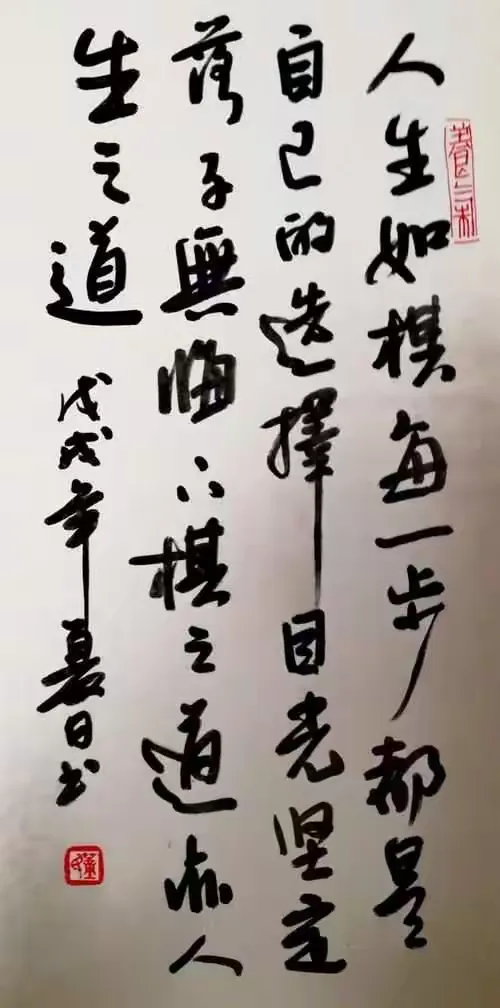 人生如棋每一步都是
自己的选擇目光坚定
落子無悔下棋之道亦人
生之道
戊戌年夏日书